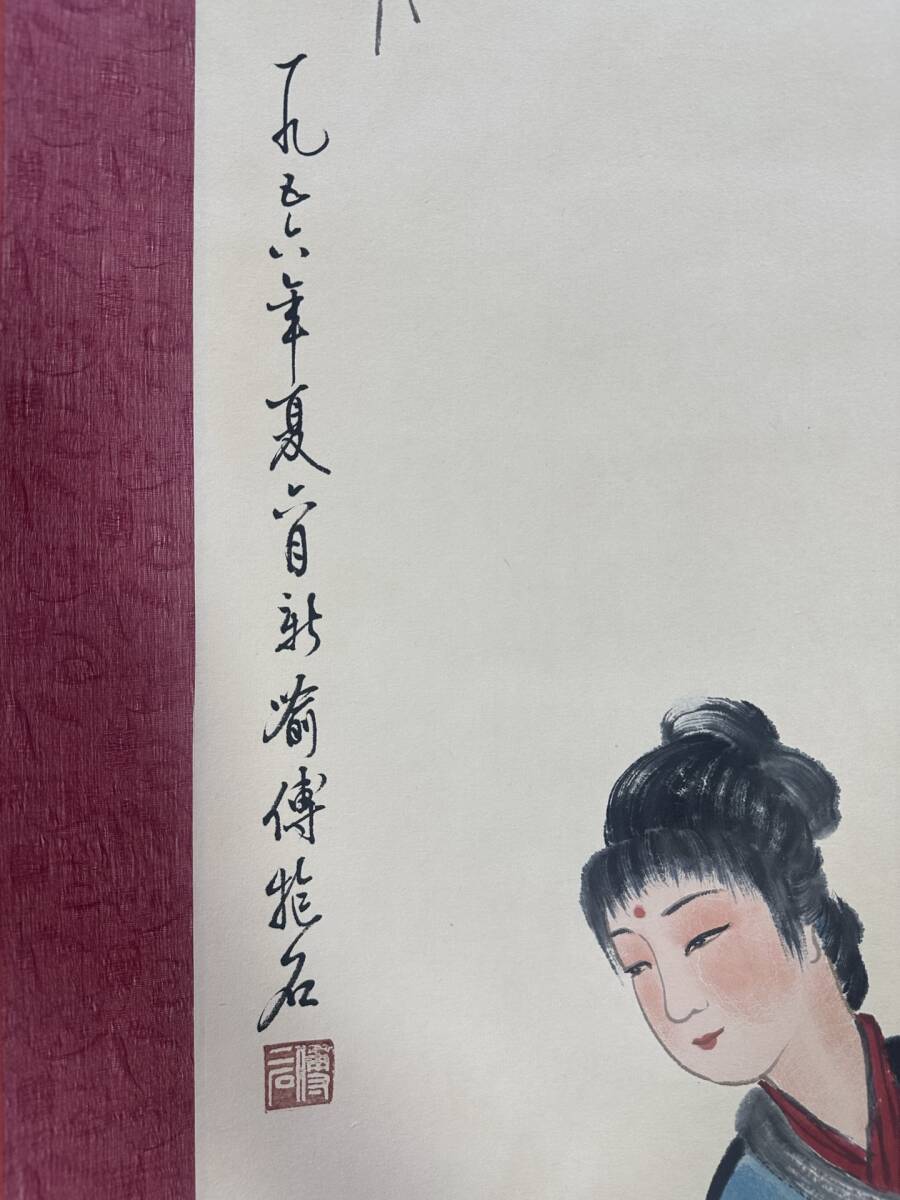 一九五六年夏六月新喻傅抱石